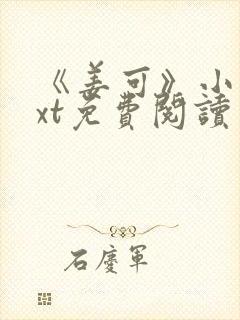 《姜可》小
xt免費閱讀
石慶軍